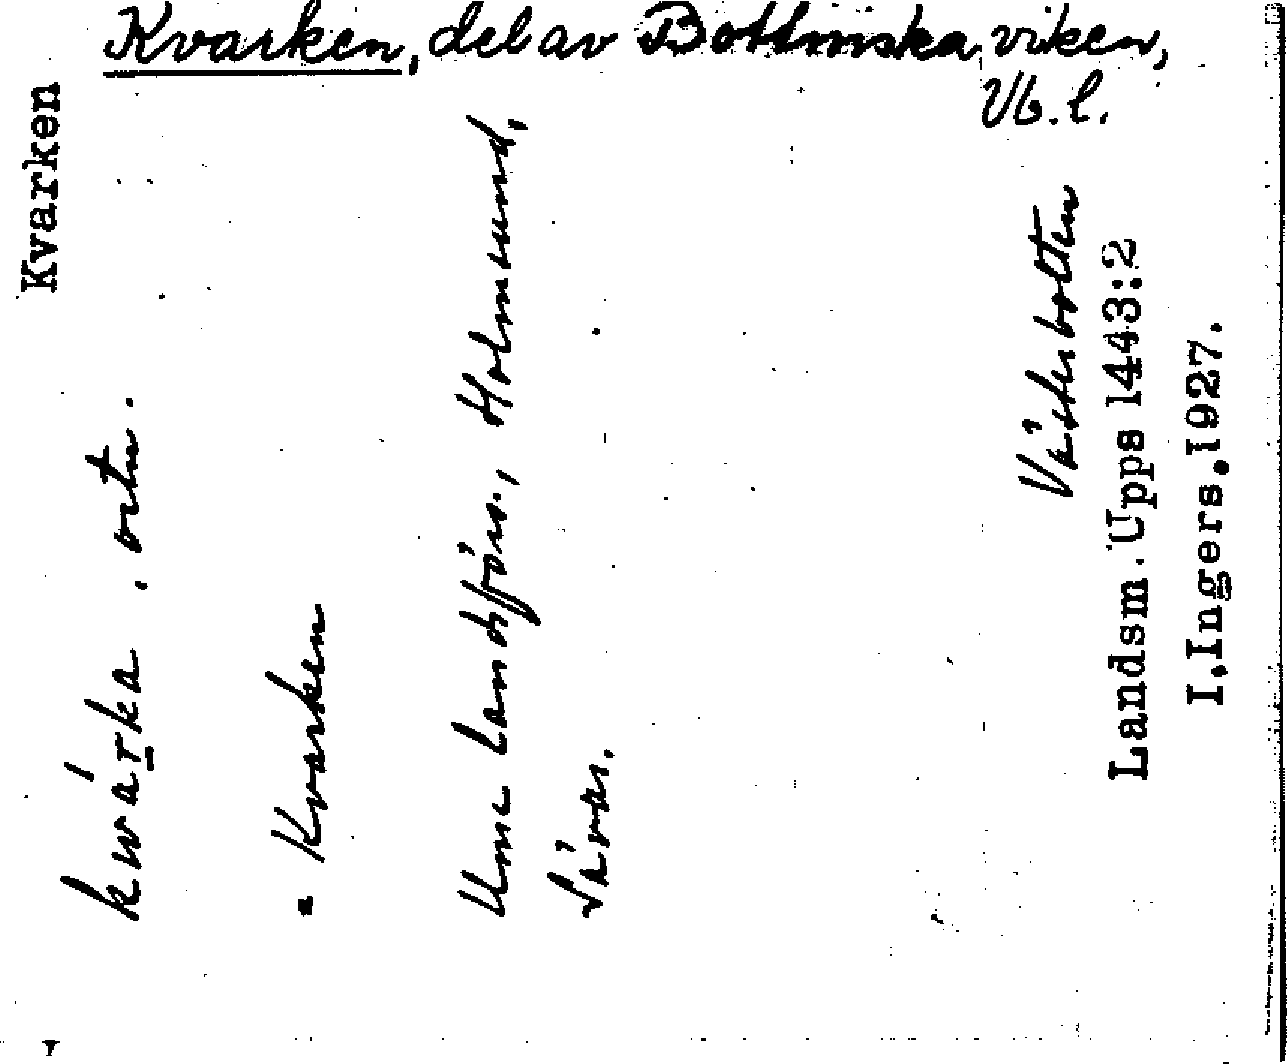 Kvarken, del av Bottniska viken,
Vb. l.
Kvarken
kwárka . ortn.
= Kvarken
Ume landsförs., Holmsund,
Sävar.
Västerbotten
Landsm. Upps 1443:2
I. Ingers. 1927.